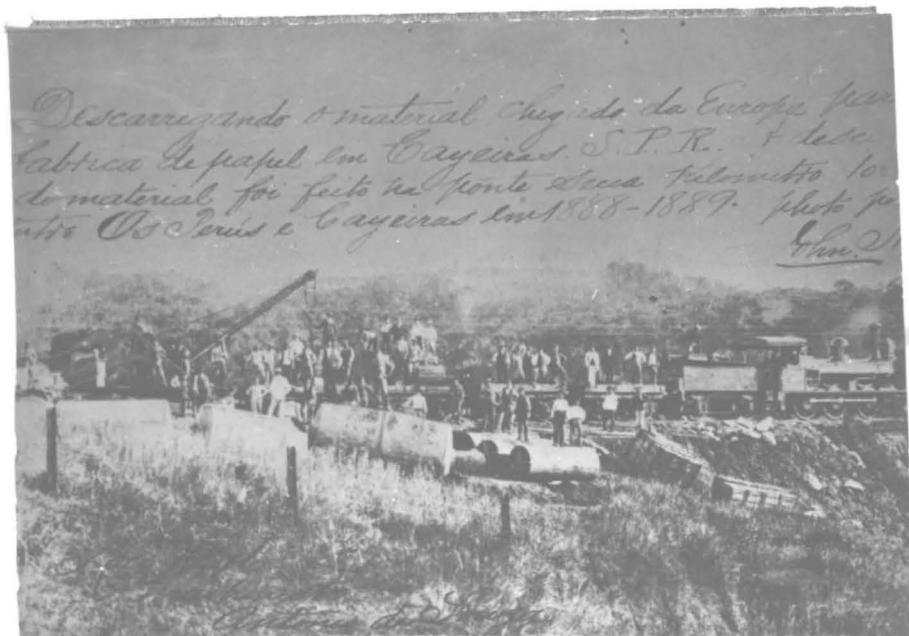 Descarregando o material chegado da Europa para
Fabrica de papel em Cayeiras. S. P. R.
do material foi feito na ponte Seca kilometro
Os Perús e Cayeiras em 1888-1889. photo